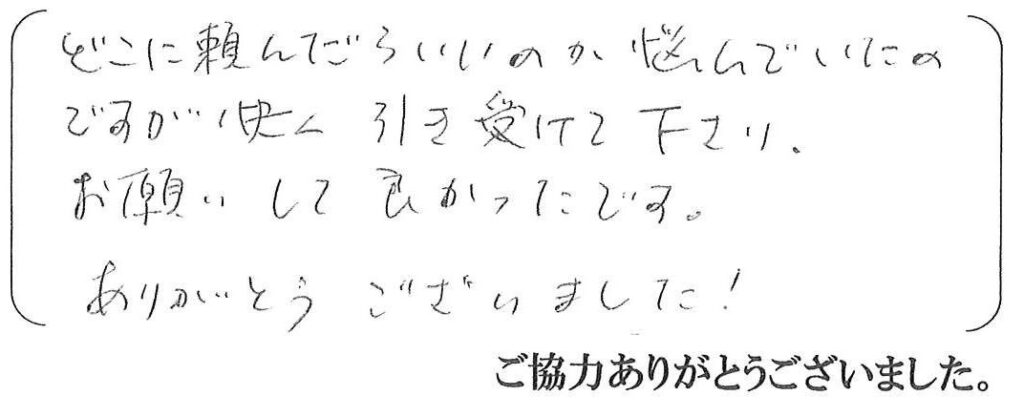 どこに頼んだらいいのか悩んでいたの
ですが快く引き受けて下さり、
お願いして良かったです。
ありがとうございました!
ご協力ありがとうございました。